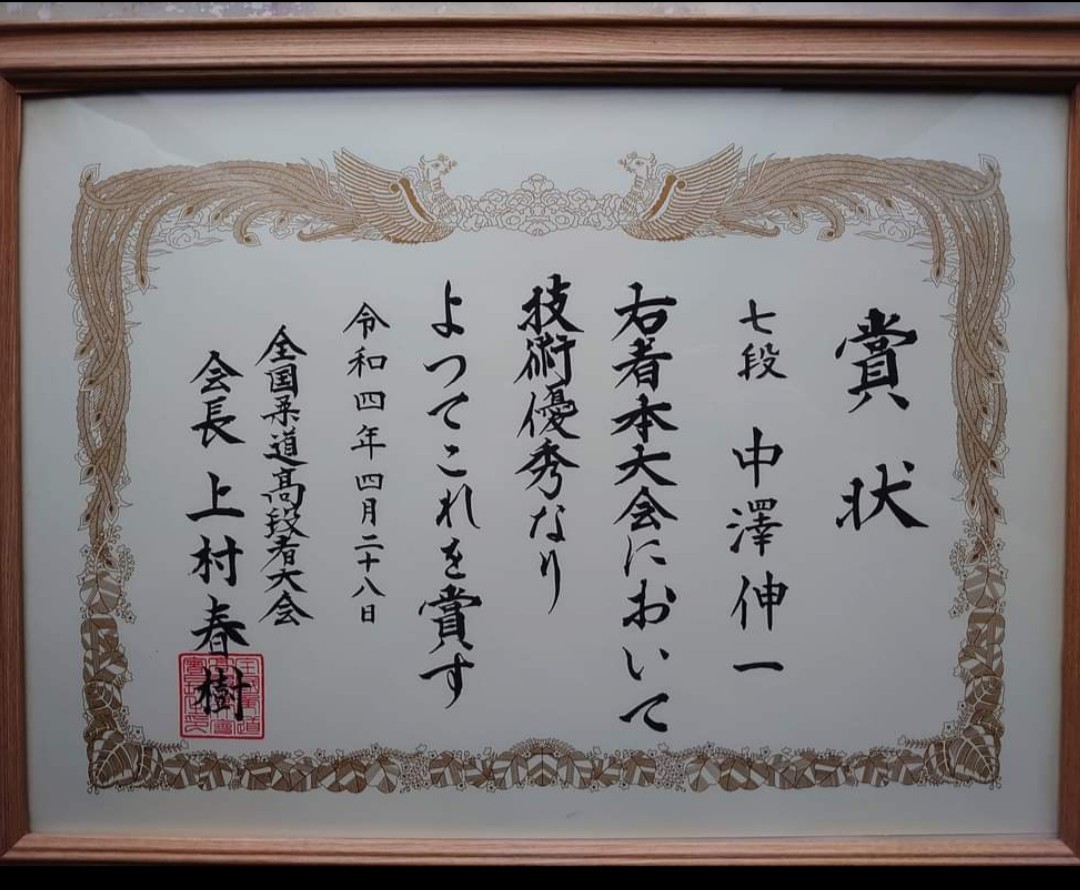 賞状
七段 中澤伸一
右者本大会において
技術優秀なり
よつてこれを賞す
令和四年四月二十八日
全国柔道高段者大会
会長 上村春樹